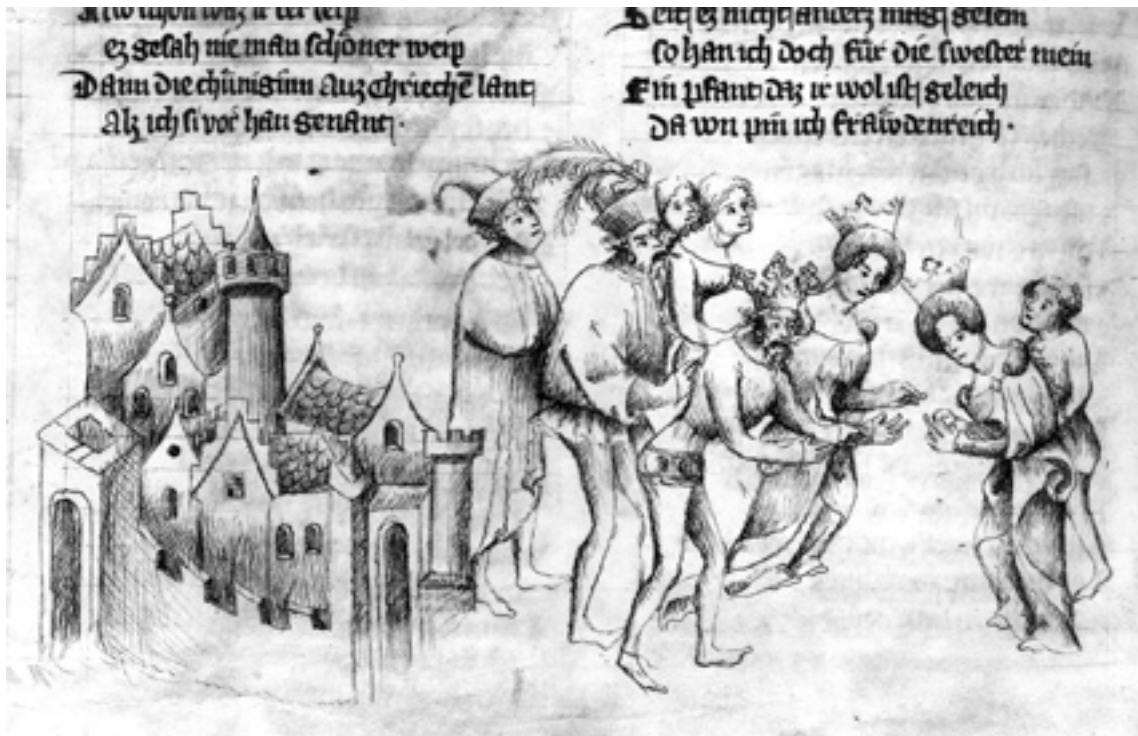 schon waz ir der leip
ez gesah nie man schöner weip
Dann die chüniginn auz chriechē lant
Alz ich si vor han genant ·
Seit ez nicht anderz mag gesein
so han ich doch für die swester mein
Ein pfant daz ir wol ist geleich
Da von pin ich frawdenreich ·